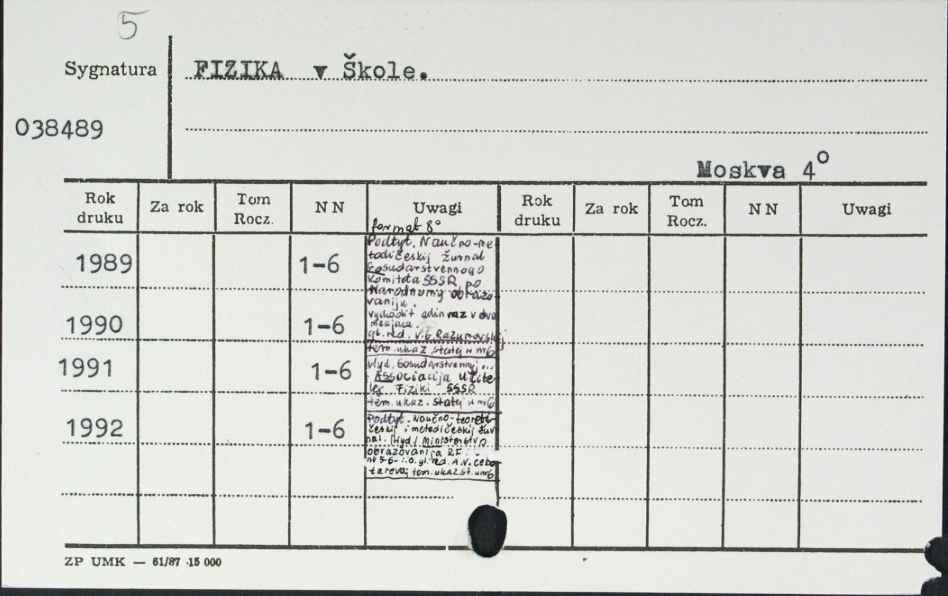 5
Sygnatura
FIZIKA v Škole.
038489
Moskva 4°
Rok druku
Za rok
Tom Rocz.
NN
Uwagi
Rok druku
Za rok
Tom Rocz.
NN
Uwagi
format 8°
1989
1-6
Podtyt. Naučno-me
todičeskij žurnal
Gosudarstvennogo
Komiteta SSSR po
Narodnomu obrazo
vaniju.
1990
1-6
vychodit odin raz v dva
mesjaca.
gl. red. V.G. Razumovskij
tem. ukaz. statej w nr6
1991
1-6
Wyd. Gosudarstvennyj...
Associacija učite
lej Fiziki SSSR
tem. ukaz. statej w nr6
1992
1-6
Podtyt. Naučno-teoreti
českij i metodičeskij žur
nal. Wyd. Ministerstvo
obrazovanija RF
nr 5-6 - i.o. gl. red. A.V. Čebo
tareva; tem. ukaz st. w nr6
ZP UMK — 61/87 ·15 000